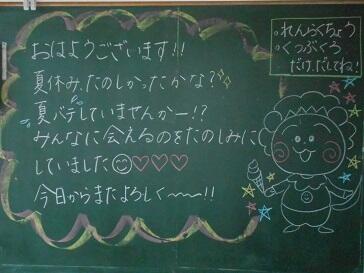 おはようございます!!
夏休み、たのしかったかな?
夏バテしていませんかー!?
みんなに会えるのをたのしみに
していました
今日からまたよろしく〜〜!!
・れんらくちょう
・くつぶくろ
だけ、だしてね!